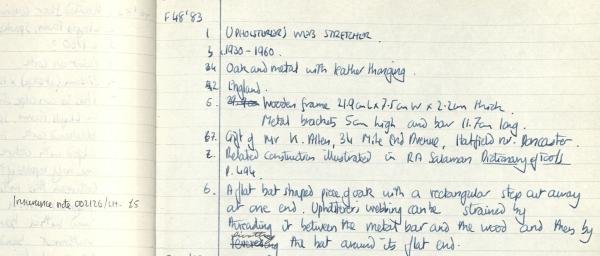 F48'83
1 UPHOLSTERER'S WEB STRETCHER.
3 1930-1960.
34 Oak and metal with leather thonging.
32 England.
5. Wooden frame 21.9cm L x 7.5cm W x 2.2cm thick.
Metal brackets 5cm high and bar 11.7cm long.
67. Gift of Mr K. Allen, 34 Mile End Avenue, Hatfield nr. Doncaster.
2. Related construction illustrated in RA Salaman Dictionary of Tools
p. 494.
6. A flat bat shaped piece of oak with a rectangular step cut away
Insurance note 002126/LH. £5
at one end. Upholsterer's webbing can be strained by
threading it between the metal bar and the wood and then by
the bat around its flat end.